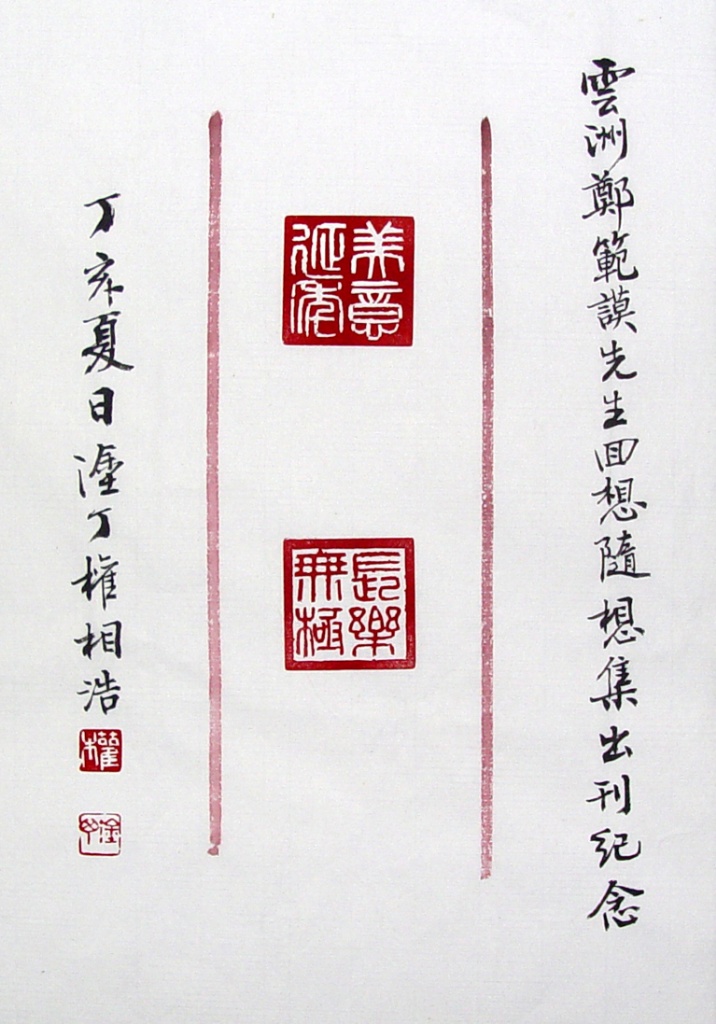 雲洲鄭範謨先生回想隨想集出刊紀念
美意延年
長樂無極
丁亥夏日塗丁權相浩
權